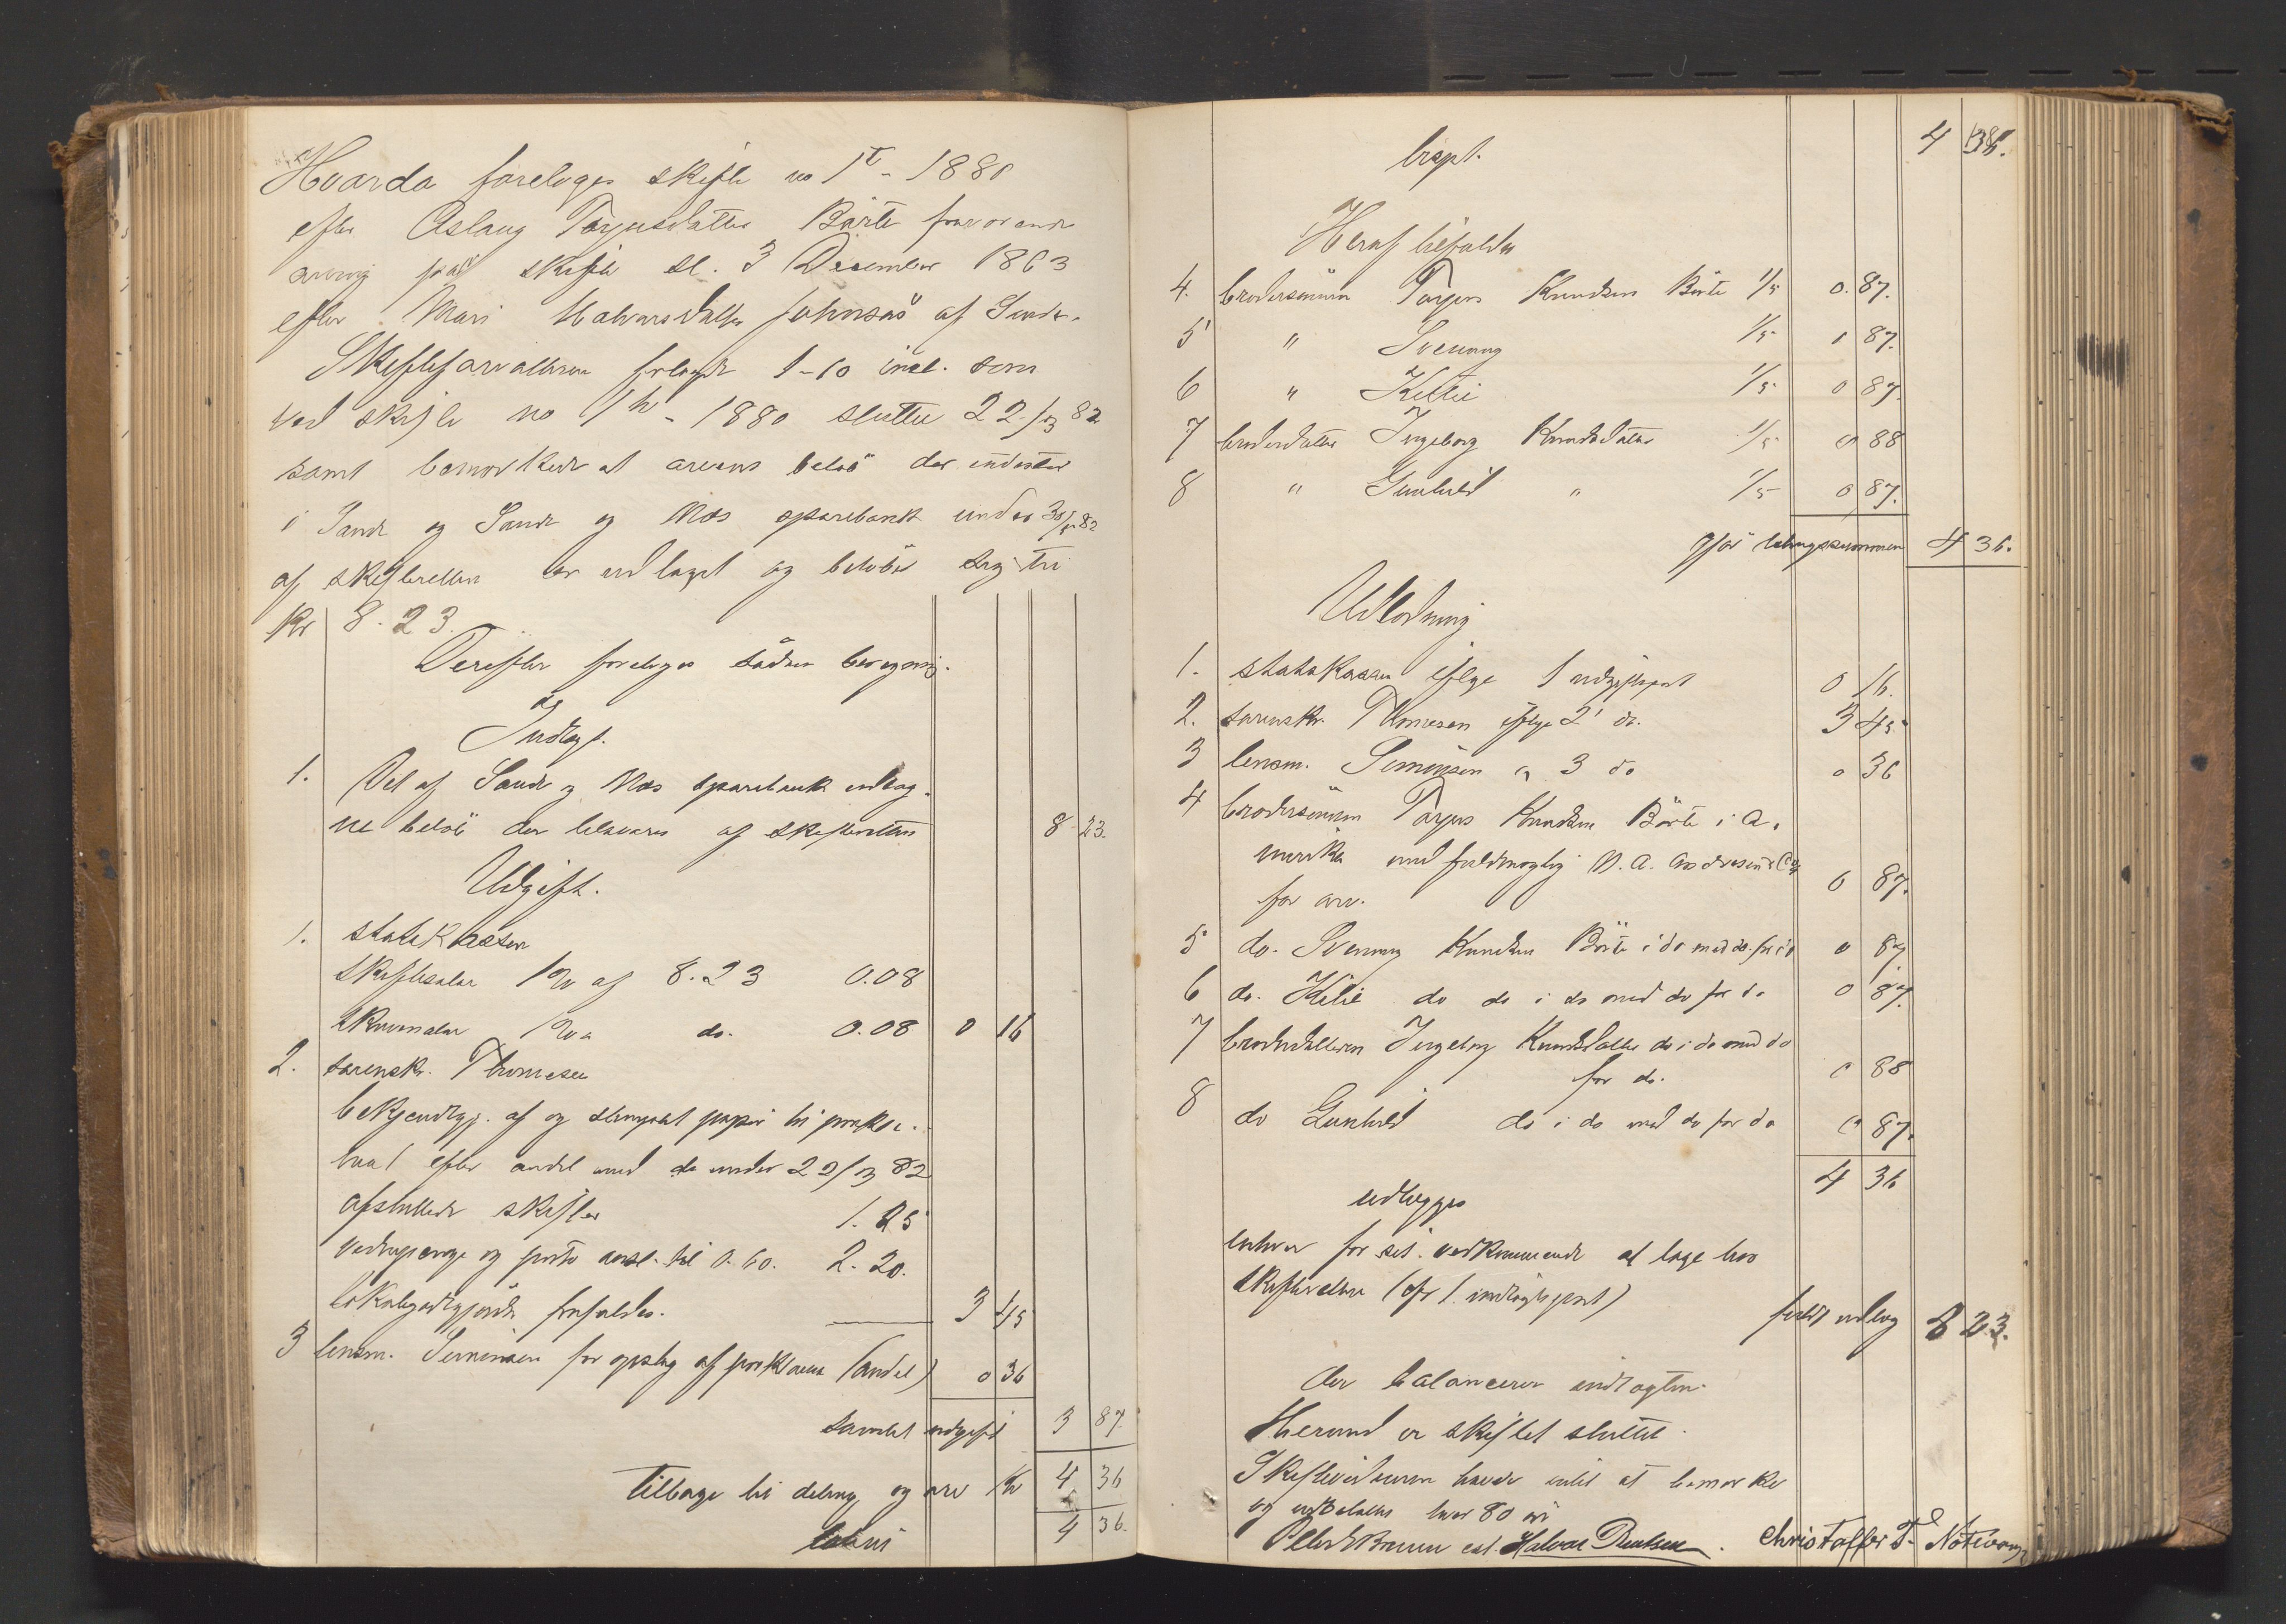 Hvorda foreloges skifte no 1 - 1880
efter Aslaug Tarjusdatter Börte fraværende
arving på skifte sl. 3 December 1863
efter Mari Halvorsdatter Johnsås af Sande.
Skifteforvalteren 1-10 incl. som
ved skifte no 1 - 1880 sluttet 22/3 82
samt bemærkede at arvens belöb der indestår
i Sand og Sande og Mos sparebank under 30/5 82
af skifteretten er udtaget og belöber sig til
Kr 8.23.
Derefter foreloges sådan beregning.
Indtægt.
1. Det af Sande og Mos sparebank udtag-
ne belöb der besvares af skifteretten 8 23.
Udgift.
1. statskassen
skiftesalær 1% af 8.23 0.08
skrivsalær 1% " do. 0.08 0 16
2. sorenskr. Thomesen
bekjendtgj. af og stemplet papir til prokla-
ma 1 efter andel med de under 22/3 82
afsluttede skifter 1.25
vedtægpenge og porto ansl. til 0.60. 2.20.
lokalgodtgjörelse frafaldes. 3 45
3 lensm. Simonsen for opslag af proklama (andel) 0 36
Samlet udgift 3 87.
Tilbage til deling og arv Kr 4 36
Lateris 4 36.
Trspt. 4 36.
Heraf tilfalder
4. brodersönnen Tarjus Knudsen Börte 1/5 0.87.
5 " Svenung 1/5 0 87.
6 " Kittil 1/5 0 87.
7 broderdatter Ingeborg Knudsdatter 1/5 0 88
8 " Gunhild " 1/5 0 87.
gjör delingssummen 4 36.
Udlodning
1. statskassen ifölge 1 udgiftspost 0 16.
2. sorenskr. Thomesen ifölge 2 do. 3 45
3 lensm. Simonsen " 3 do 0 36
4 brodersönnen Tarjus Knudsen Börte i A-
merika med fuldmægtig N. A.
for arv. 0 87.
5 do. Svenung Knudsen Börte i do med do. for do 0 87
6 do. Kittil do do i do med do for do 0 87.
7 broderdatteren Ingeborg Knudsdatter do i do med do
for do. 0 88
8 do Gunhild do i do med do for do 0 87.
4 36
udlægges
enhver for sit vedkommende at tage hos
skifteretten (cfr 1. indtægtspost)
fuldt udlæg 8 23.
der balancerer indtægten.
Hermed er skiftet sluttet.
Skiftevidnerne havde intet at bemærke
og udbetaltes hver 80 öre
Halvor Christoffer T.